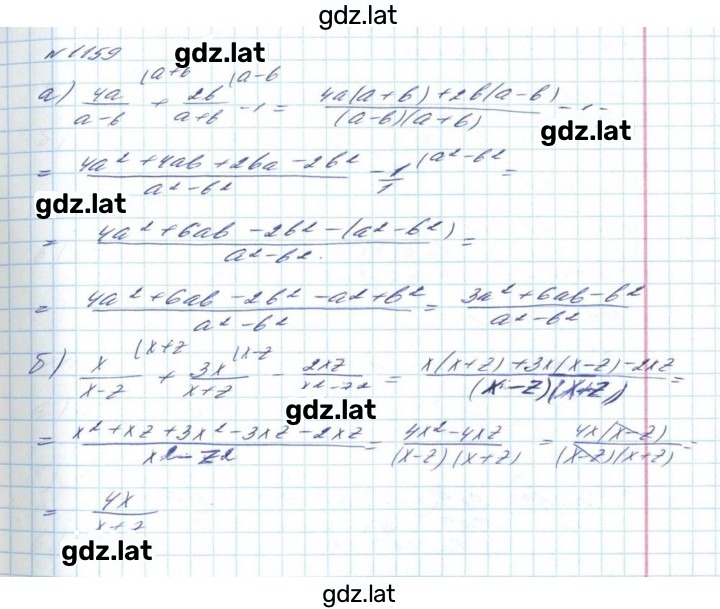 gdz.lat
gdz.lat
N 1159
а) 4a/(a-b) (a+b + 2b/(a+b) (a-b - 1 = (4a(a+b)+2b(a-b))/((a-b)(a+b)) - 1 -
gdz.lat
= (4a²+4ab+2ba-2b²)/(a²-b²) - 1/1 (a²-b² =
gdz.lat
= (4a²+6ab-2b²-(a²-b²))/(a²-b²) =
= (4a²+6ab-2b²-a²+b²)/(a²-b²) = (3a²+6ab-b²)/(a²-b²)
б) x/(x-z) (x+z + 3x/(x+z) (x-z - 2xz/(x²-z²) = (x(x+z)+3x(x-z)-2xz)/((x-z)(x+z)) =
gdz.lat
= (x²+xz+3x²-3xz-2xz)/(x²-z²) = (4x²-4xz)/((x-z)(x+z)) = (4x(x-z))/((x-z)(x+z)) =
= 4x/(x+z)
gdz.lat
gdz.lat